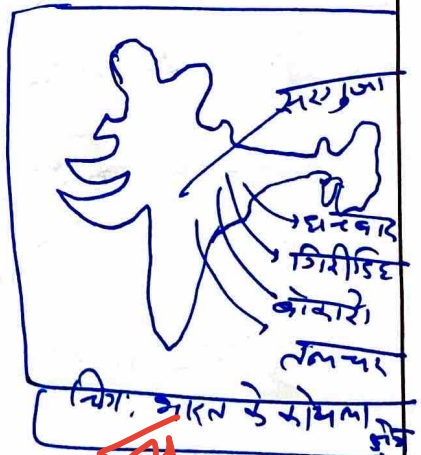 सरगुजा
धनबाद
गिरीडिह
बोकारो
तलचर
चित्र: भारत के कोयला
क्षेत्र